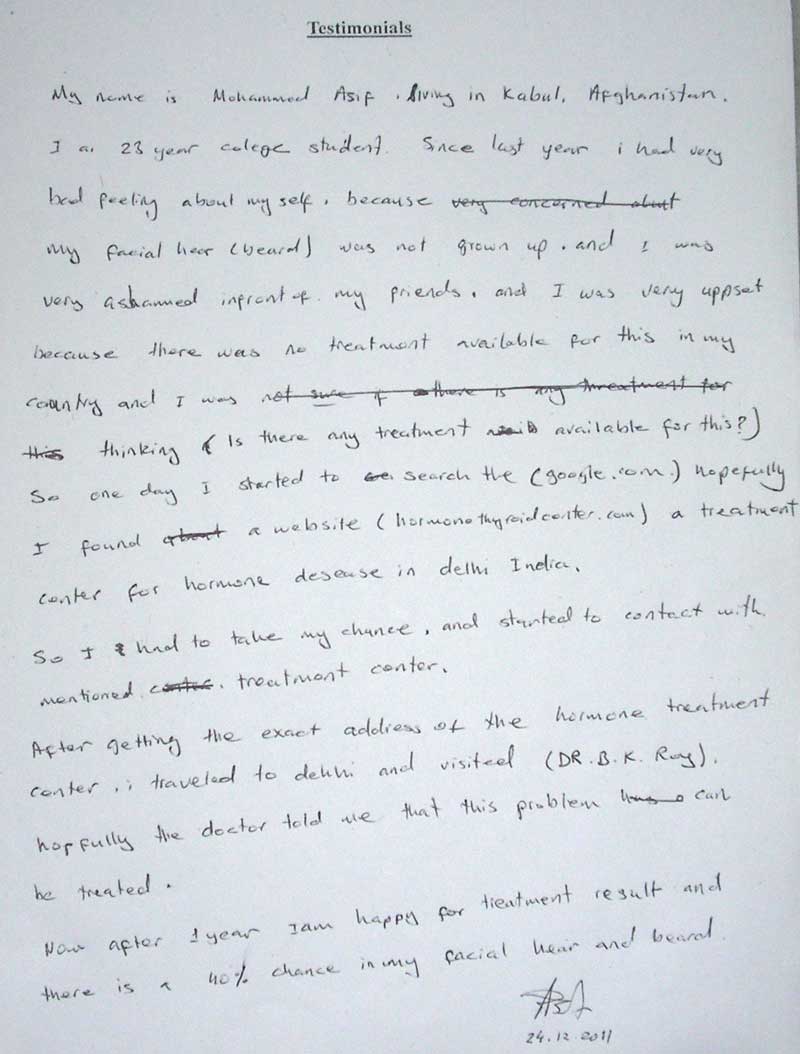 Testimonials
My name is Mohammed Asif , living in Kabul, Afghanistan.
I a. 23 year colege student. Since last year i had very
bad feeling about my self, because very concerned about
my facial hear (beard) was not grown up. and I was
very ashammed infront of my friends. and I was very appset
because there was no treatment available for this in my
country and I was not sure if there is any threatment for
this thinking ( Is there any treatment available for this?)
So one day I started to search the (google.com.) hopefully
I found about a website (hormonethyroidcenter.com) a treatment
center for hormone desease in delhi India.
So I had to take my chance, and started to contact with
mentioned center. treatment center.
After getting the exact address of the hormone treatment
center , i traveled to dehhi and visited (DR. B. K. Roy).
hopfully the doctor told me that this problem has can
be treated.
Now after 1 year I am happy for treatment result and
there is a 40% chance in my facial hear and beard
24.12.2011